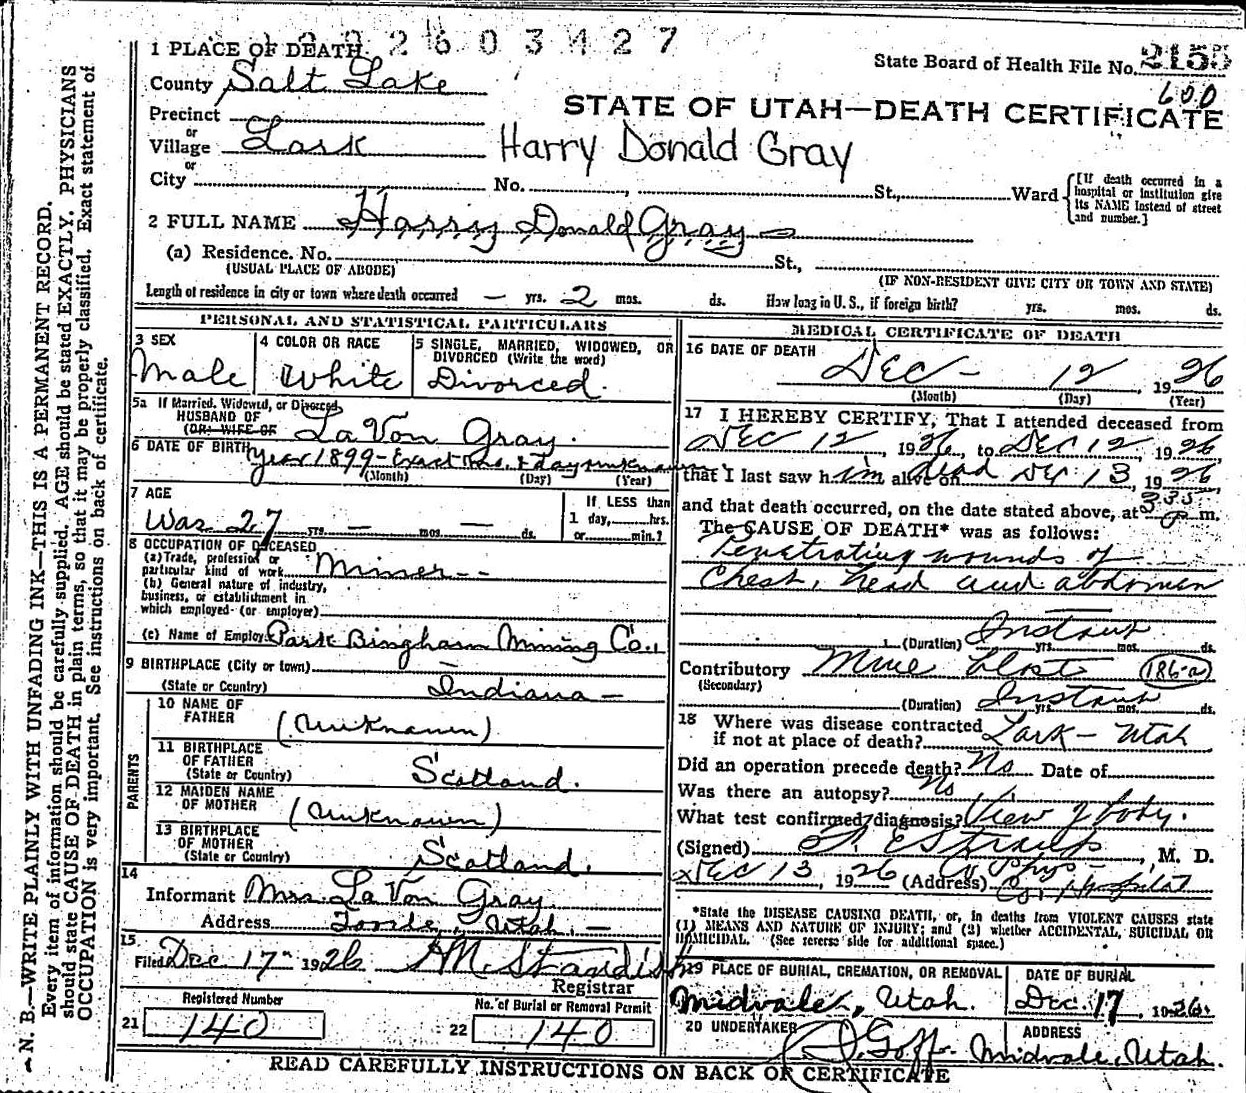 2 6 0 3 4 2 7
1 PLACE OF DEATH
State Board of Health File No. 2155
County Salt Lake
600
STATE OF UTAH—DEATH CERTIFICATE
Precinct
or
Village Lark
Harry Donald Gray
or
City No. , St., Ward
[If death occurred in a hospital or institution give its NAME instead of street and number.]
2 FULL NAME Harry Donald Gray
(a) Residence. No. St.,
(USUAL PLACE OF ABODE)
(IF NON-RESIDENT GIVE CITY OR TOWN AND STATE)
Length of residence in city or town where death occurred — yrs. 2 mos. ds. How long in U. S., if foreign birth? yrs. mos. ds.
PERSONAL AND STATISTICAL PARTICULARS
3 SEX
Male
4 COLOR OR RACE
White
5 SINGLE, MARRIED, WIDOWED, OR DIVORCED (Write the word)
Divorced.
5a If Married, Widowed, or Divorced
HUSBAND OF
(OR) WIFE OF
La Von Gray.
6 DATE OF BIRTH Year 1899 - Exact mo. & day unknown
(Month) (Day) (Year)
7 AGE
Was 27 yrs. — mos. — ds.
If LESS than
1 day, hrs.
or min.?
8 OCCUPATION OF DECEASED
(a) Trade, profession or
particular kind of work Miner
(b) General nature of industry,
business, or establishment in
which employed (or employer)
(c) Name of Employer Park Bingham Mining Co.,
9 BIRTHPLACE (City or town) —
(State or Country) Indiana —
PARENTS
10 NAME OF
FATHER (Unknown)
11 BIRTHPLACE
OF FATHER
(State or Country) Scotland.
12 MAIDEN NAME
OF MOTHER (Unknown)
13 BIRTHPLACE
OF MOTHER
(State or Country) Scotland.
14
Informant Mrs. La Von Gray
Address Tooele, Utah. —
15
Filed Dec 17" 1926 M. Standish
Registrar
Registered Number
21 140
No. of Burial or Removal Permit
22 140
MEDICAL CERTIFICATE OF DEATH
16 DATE OF DEATH
Dec - 12, 1926
(Month) (Day) (Year)
17 I HEREBY CERTIFY, That I attended deceased from
Dec 12, 1926, to Dec 12, 1926,
that I last saw him alive on dead Dec 13, 1926,
and that death occurred, on the date stated above, at 335 P m.
The CAUSE OF DEATH* was as follows:
Penetrating wounds of
Chest, head and abdomen
(Duration) Instant yrs. mos. ds.
Contributory Mine Blast (186-a)
(Secondary)
(Duration) Instant yrs. mos. ds.
18 Where was disease contracted
if not at place of death? Lark - Utah
Did an operation precede death? No Date of
Was there an autopsy? No
What test confirmed diagnosis? View of body.
(Signed) E Straup, M. D.
Dec 13, 1926 (Address) Co. Phys - Co. Hospital
*State the DISEASE CAUSING DEATH, or, in deaths from VIOLENT CAUSES state
(1) MEANS AND NATURE OF INJURY; and (2) whether ACCIDENTAL, SUICIDAL OR
HOMICIDAL. (See reverse side for additional space.)
19 PLACE OF BURIAL, CREMATION, OR REMOVAL
Midvale, Utah.
DATE OF BURIAL
Dec. 17, 1926.
20 UNDERTAKER
Goff
ADDRESS
Midvale, Utah.
READ CAREFULLY INSTRUCTIONS ON BACK OF CERTIFICATE
N. B.—WRITE PLAINLY WITH UNFADING INK—THIS IS A PERMANENT RECORD.
Every item of information should be carefully supplied. AGE should be stated EXACTLY. PHYSICIANS
should state CAUSE OF DEATH in plain terms, so that it may be properly classified. Exact statement of
OCCUPATION is very important. See instructions on back of certificate.